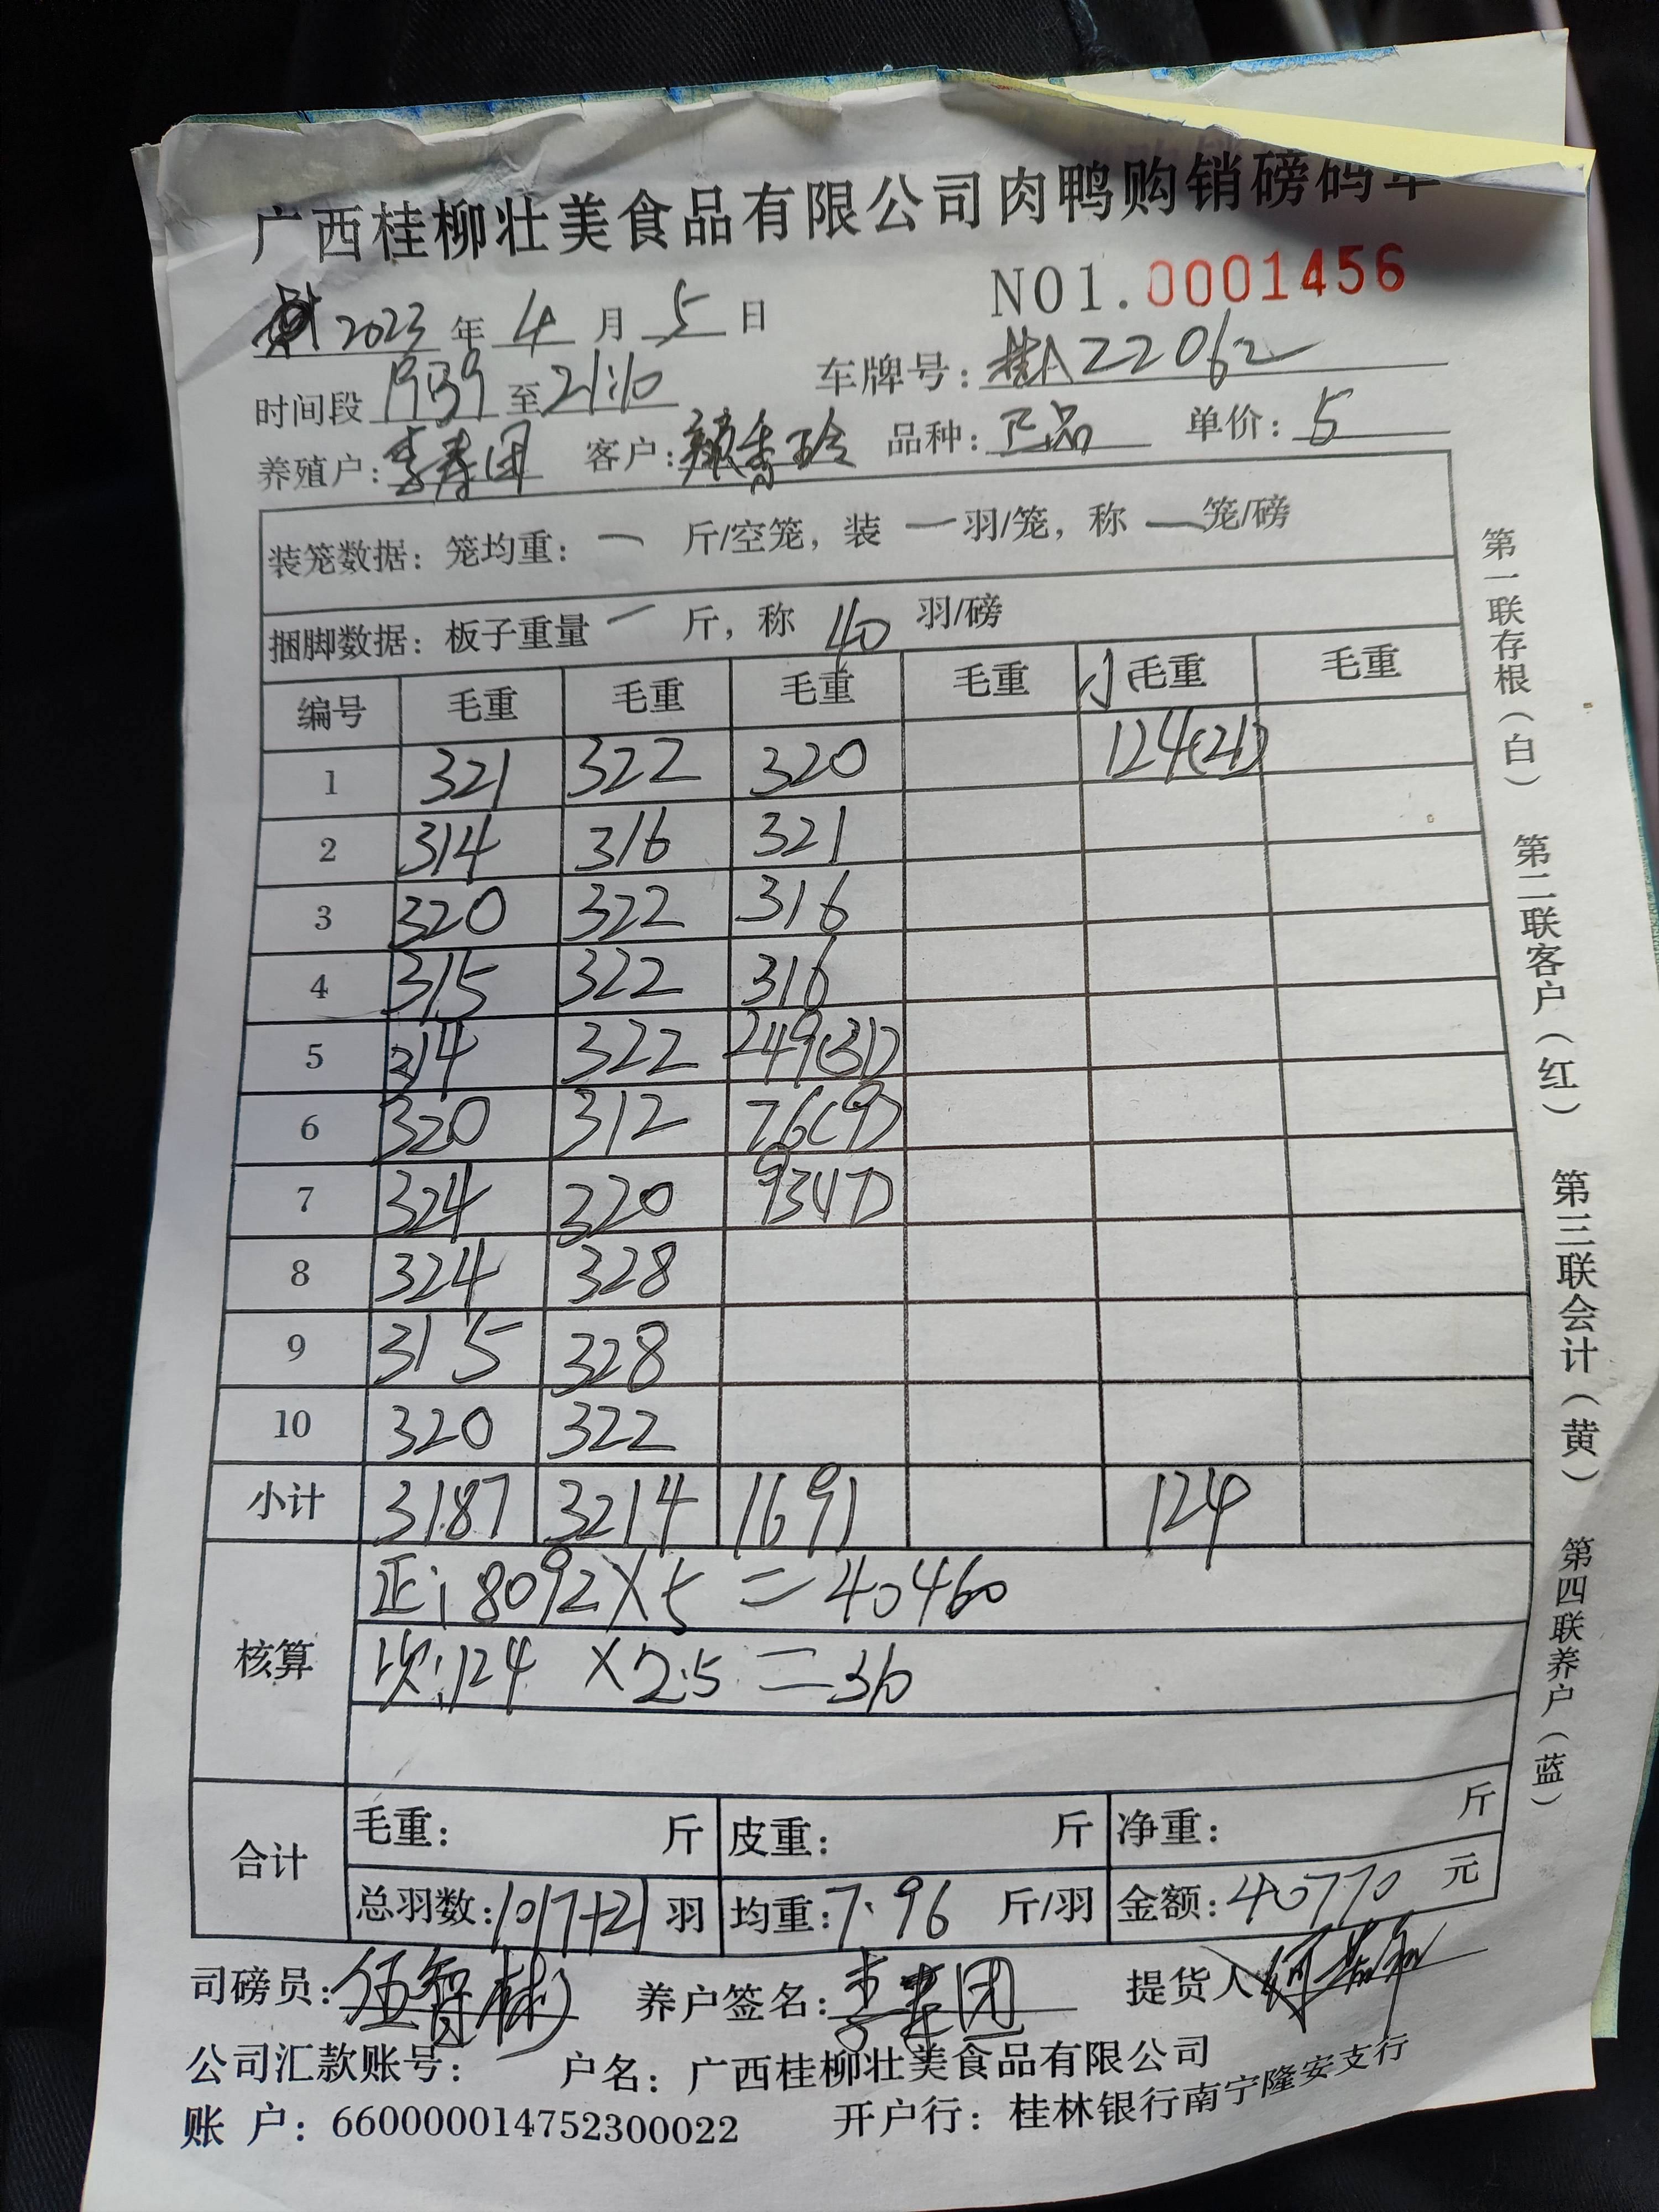 广西桂柳壮美食品有限公司肉鸭购销磅码单
NO1.0001456
2023年4月5日
时间段1939至21:10 车牌号:桂A22062
养殖户:李春团 客户:颜香玲 品种:正品 单价:5
装笼数据:笼均重:一 斤/空笼,装 一羽/笼,称 一笼/磅
捆脚数据:板子重量 一 斤,称 40 羽/磅
编号 毛重 毛重 毛重 毛重 小毛重 毛重
1 321 322 320 124(21)
2 314 316 321
3 320 322 316
4 315 322 316
5 314 322 249(31)
6 320 312 76(9)
7 324 320 93(17)
8 324 328
9 315 328
10 320 322
小计 3187 3214 1691 124
核算
正:8092×5=40460
次:124×2.5=310
合计
毛重: 斤 皮重: 斤 净重: 斤
总羽数:1017+21羽 均重:7.96 斤/羽 金额:40770 元
司磅员:伍智彬 养户签名:李春团 提货人
公司汇款账号: 户名:广西桂柳壮美食品有限公司
账 户:660000014752300022 开户行:桂林银行南宁隆安支行
第一联存根(白) 第二联客户(红) 第三联会计(黄) 第四联养户(蓝)